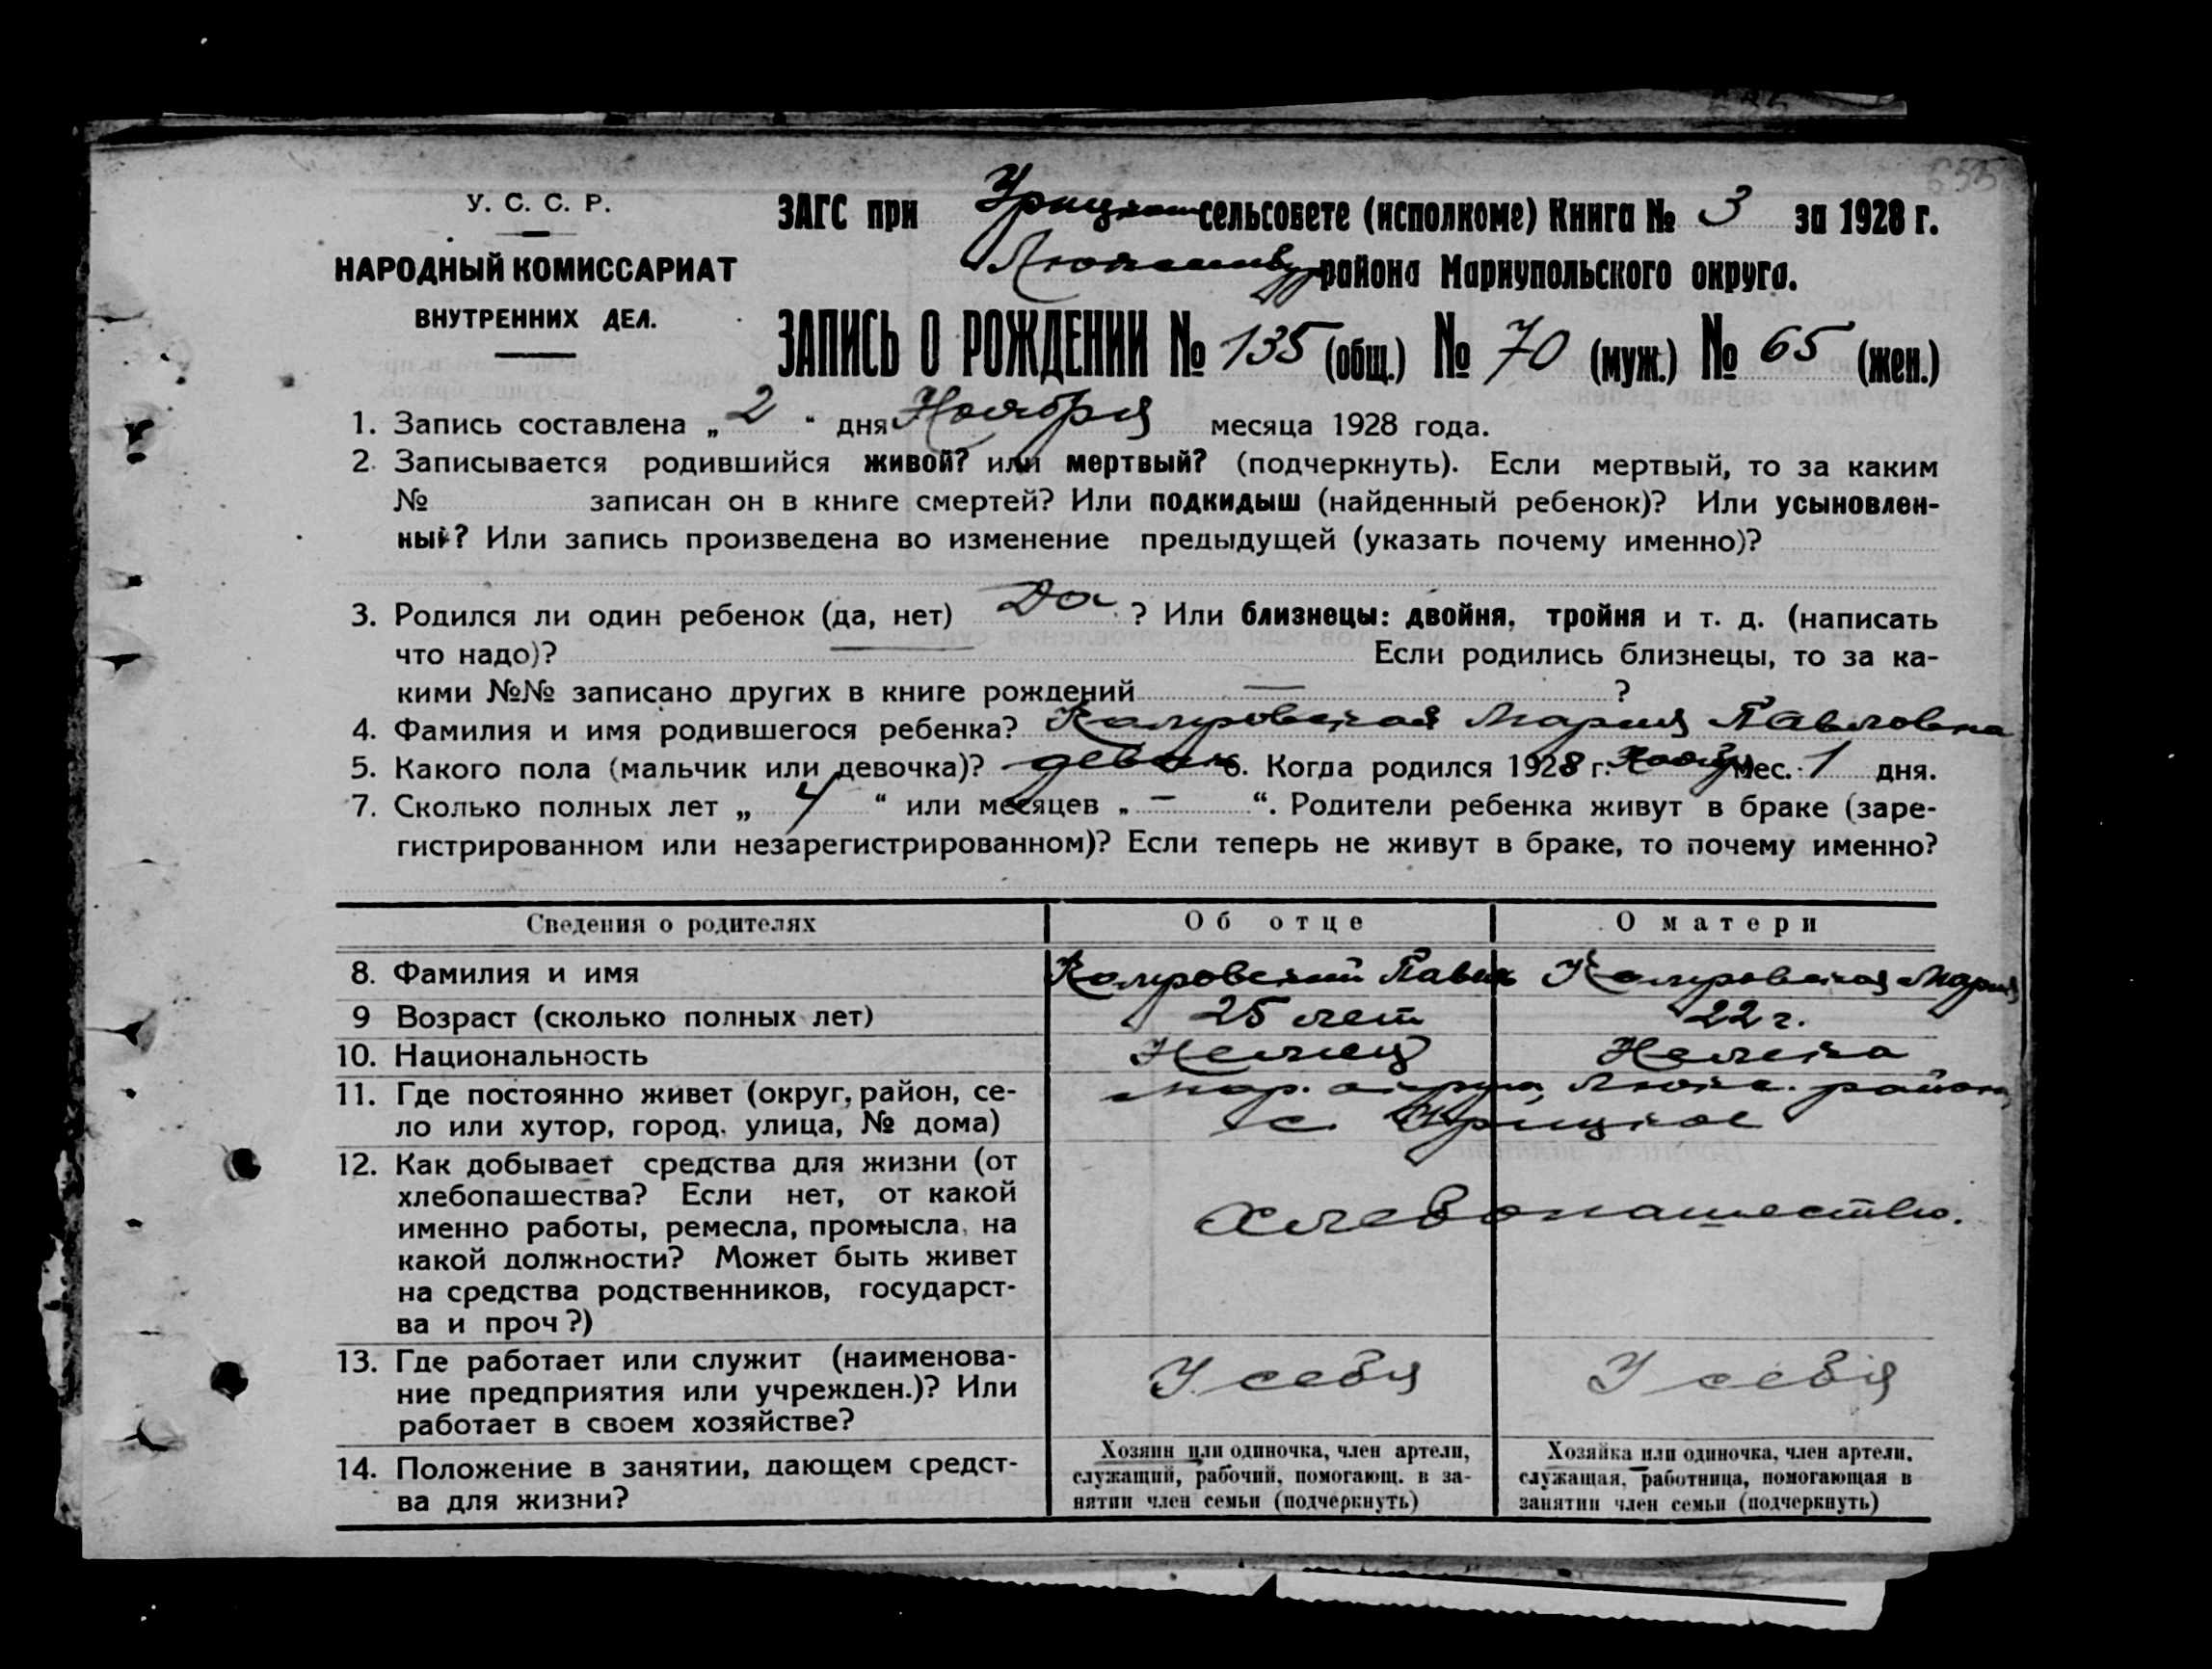 655
У. С. С. Р.
НАРОДНЫЙ КОМИССАРИАТ
ВНУТРЕННИХ ДЕЛ.
ЗАГС при Урицком сельсовете (исполкоме) Книга № 3 за 1928 г.
района Мариупольского округа.
ЗАПИСЬ О РОЖДЕНИИ № 135 (общ.) № 70 (муж.) № 65 (жен.)
1. Запись составлена „ 2 “ дня Ноября месяца 1928 года.
2. Записывается родившийся живой? или мертвый? (подчеркнуть). Если мертвый, то за каким
№ записан он в книге смертей? Или подкидыш (найденный ребенок)? Или усыновлен-
ный? Или запись произведена во изменение предыдущей (указать почему именно)?
3. Родился ли один ребенок (да, нет) Да ? Или близнецы: двойня, тройня и т. д. (написать
что надо)? — Если родились близнецы, то за ка-
кими №№ записано других в книге рождений — ?
4. Фамилия и имя родившегося ребенка? Мария Павловна
5. Какого пола (мальчик или девочка)? девоч 6. Когда родился 1928 г. Ноябр мес. 1 дня.
7. Сколько полных лет „ 4 “ или месяцев „ — “. Родители ребенка живут в браке (заре-
гистрированном или незарегистрированном)? Если теперь не живут в браке, то почему именно?
Сведения о родителях Об отце О матери
8. Фамилия и имя Павел Мария
9 Возраст (сколько полных лет) 25 лет 22 г.
10. Национальность Немец Немка
11. Где постоянно живет (округ, район, се-
ло или хутор, город. улица, № дома)
Мар. округа, Люкс. района,
с. Урицкое
12. Как добывает средства для жизни (от
хлебопашества? Если нет, от какой
именно работы, ремесла, промысла, на
какой должности? Может быть живет
на средства родственников, государст-
ва и проч?)
Хлебопашество.
13. Где работает или служит (наименова-
ние предприятия или учрежден.)? Или
работает в своем хозяйстве?
У себя У себя
14. Положение в занятии, дающем средст-
ва для жизни?
Хозяин или одиночка, член артели,
служащий, рабочий, помогающ. в за-
нятии член семьи (подчеркнуть)
Хозяйка или одиночка, член артели,
служащая, работница, помогающая в
занятии член семьи (подчеркнуть)